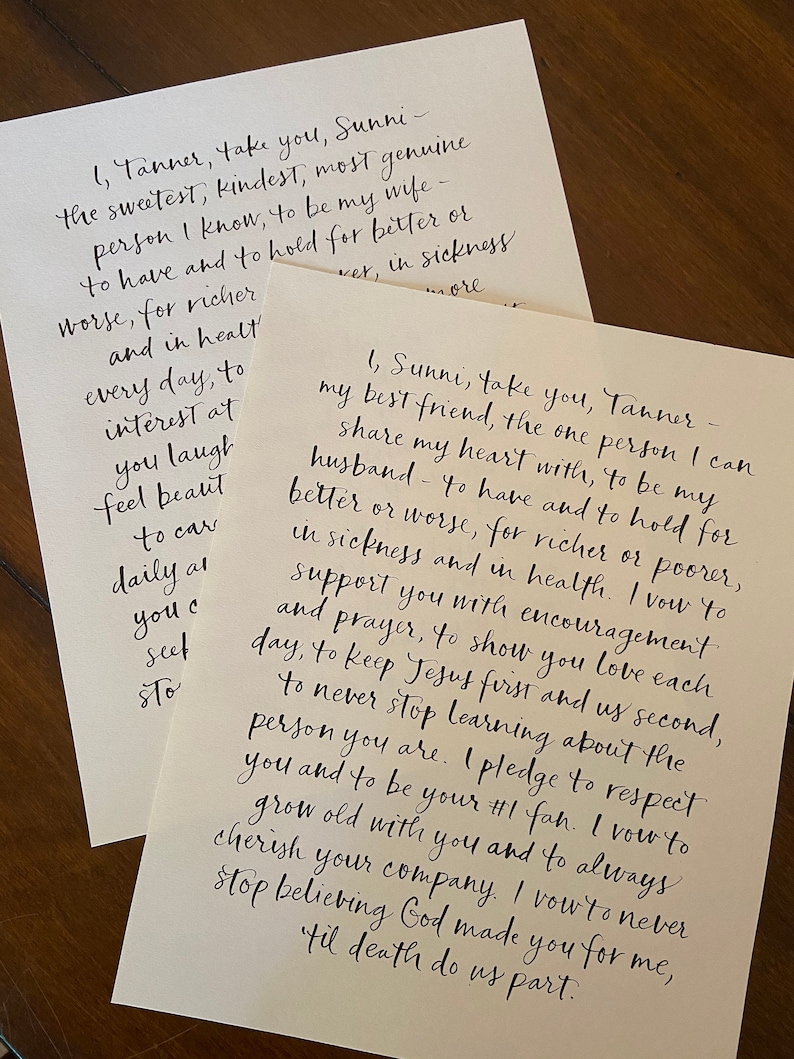 I, Tanner, take you, Sunni -
the sweetest, kindest, most genuine
person I know, to be my wife -
to have and to hold for better or
worse, for richer in sickness
and in healt more
every day, to
interest at
you laugh
feel beaut
to car
daily a
you c
see
sto
I, Sunni, take you, Tanner -
my best friend, the one person I can
share my heart with, to be my
husband - to have and to hold for
better or worse, for richer or poorer,
in sickness and in health. I vow to
support you with encouragement
and prayer, to show you love each
day, to keep Jesus first and us second,
to never stop learning about the
person you are. I pledge to respect
you and to be your #1 fan. I vow to
grow old with you and to always
cherish your company. I vow to never
stop believing God made you for me,
'til death do us part.